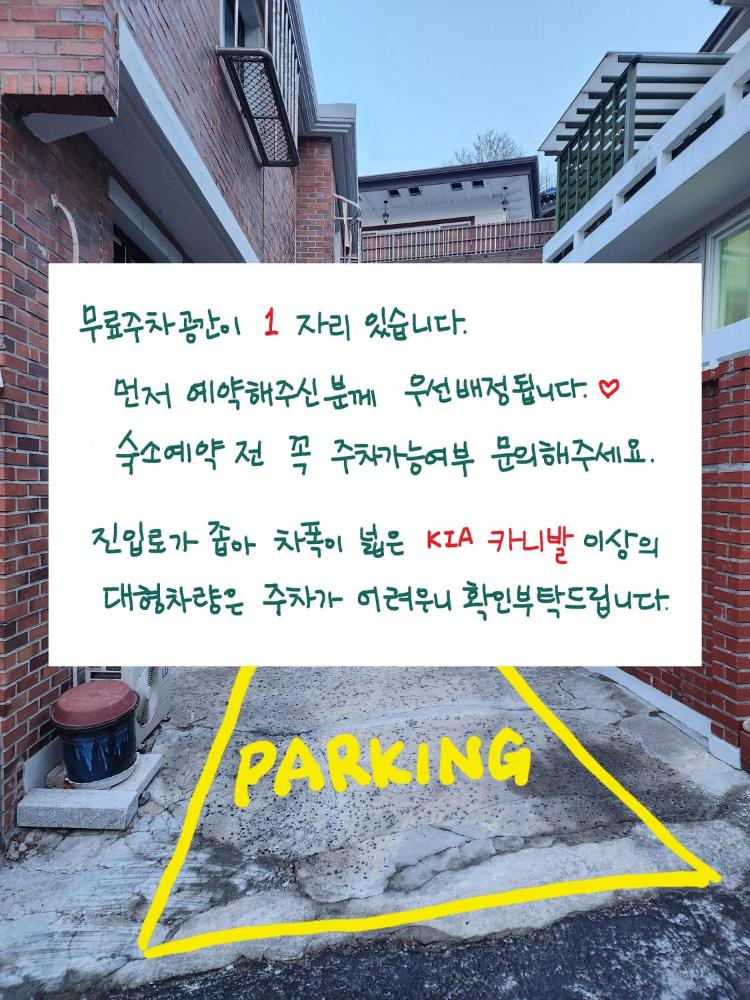 무료주차공간이 1 자리 있습니다.
먼저 예약해주신분께 우선배정됩니다.♡
숙소예약 전 꼭 주차가능여부 문의해주세요.
진입로가 좁아 차폭이 넓은 KIA 카니발 이상의
대형차량은 주차가 어려우니 확인부탁드립니다.
PARKING